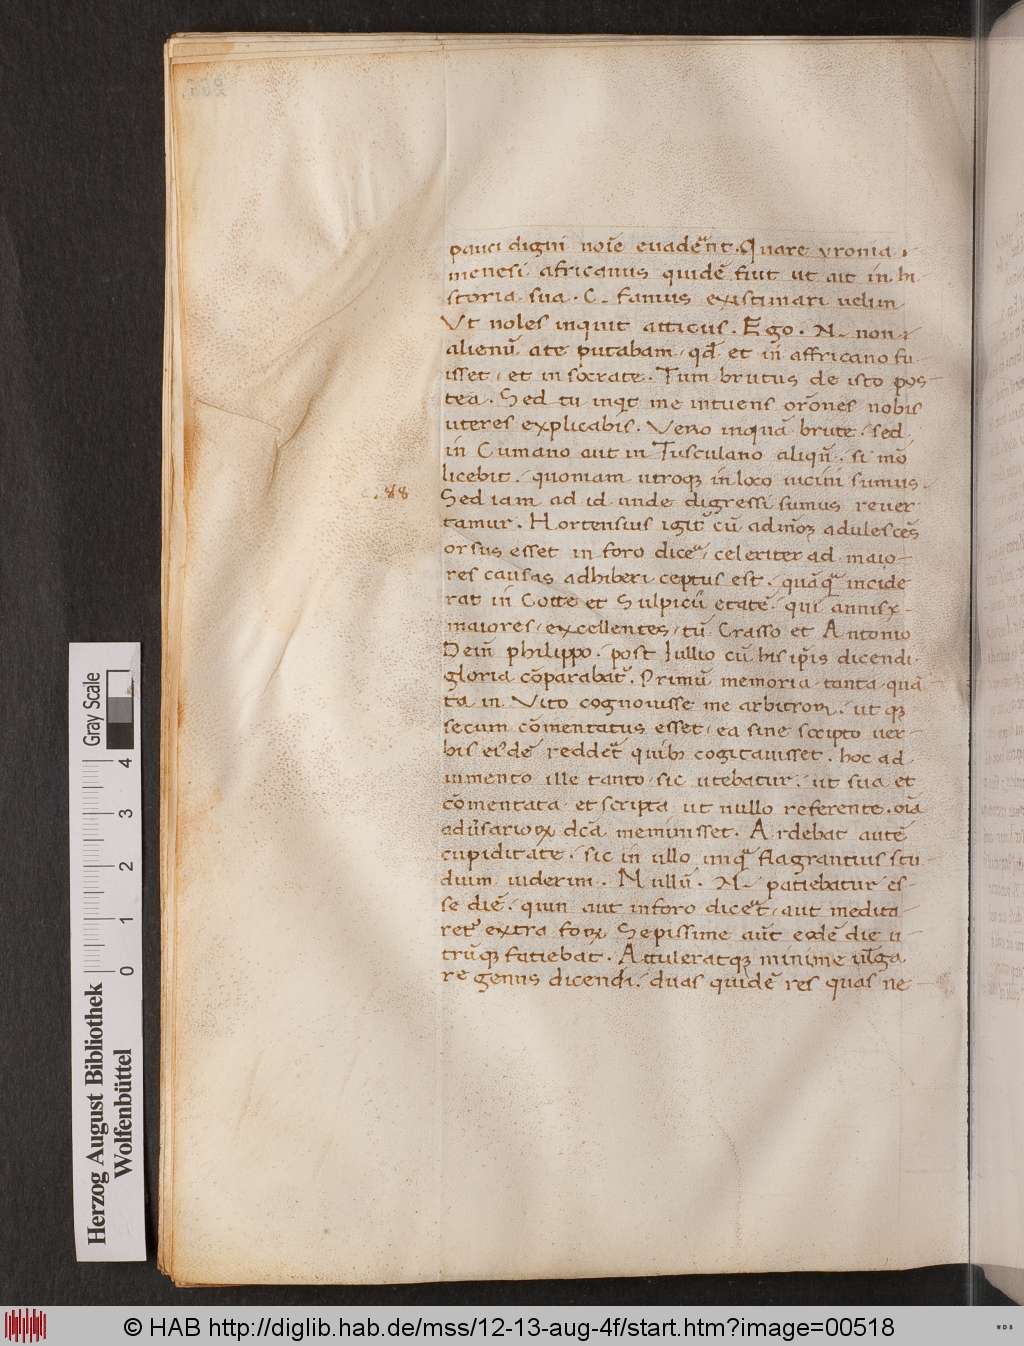 pauci digni noīe euadēnt. Quare yronia
menesi africanus quidē fuit ut ait in hi
storia sua. C. fanius existimari uelim
Vt noles inquit atticus. Ego. N. non
alienū a te putabam, qđ et in affricano fu
isset, et in socrate. Tum brutus de isto pos
tea. Sed tu inqt me intuens orōnes nobis
ueteres explicabis. Vero inquā brute, sed
in Cumano aut in Tusculano aliqñ. si mō
licebit. quoniam utroqꝫ in loco uicini sumus.
.88
Sed iam ad id unde digressi sumus reuer
tamur. Hortensius igit̄ cū admōꝫ adulescēs
orsus esset in foro dicē, celeriter ad maio
res causas adhiberi ceptus est. quāqᷓ incide
rat in Cotte et Sulpicii etatē. qui annis x
maiores, excellentes, tū Crasso et Antonio
Dein̄ philippo. post Iullio cū his ip̄is dicendi
gloria cōparabat̄. Primū memoria tanta quā
ta in Vito cognouisse me arbitror. ut qꝫ
secum cōmentatus esset, ea sine scripto uer
bis eisdē reddet̄ quibꝫ cogitauisset. hoc ad
iumento ille tanto sic utebatur, ut sua et
cōmentata et scripta ut nullo referente. oīa
adūsarioꝝ dc̄a meminisset. Ardebat autē
cupiditate. sic in ullo unqᷓ flagrantius stu
dium uiderim. Nullū. N. patiebatur es
se diē. quin aut in foro dicēt, aut medita
ret̄ extra foꝝ Sepissime aūt eodē die u
trūqꝫ fatiebat. Attuleratqꝫ minime uūlga
re genus dicendi. duas quidē res quas ne
Herzog August Bibliothek
Wolfenbüttel
0 1 2 3 4
Gray Scale
© HAB http://diglib.hab.de/mss/12-13-aug-4f/start.htm?image=00518